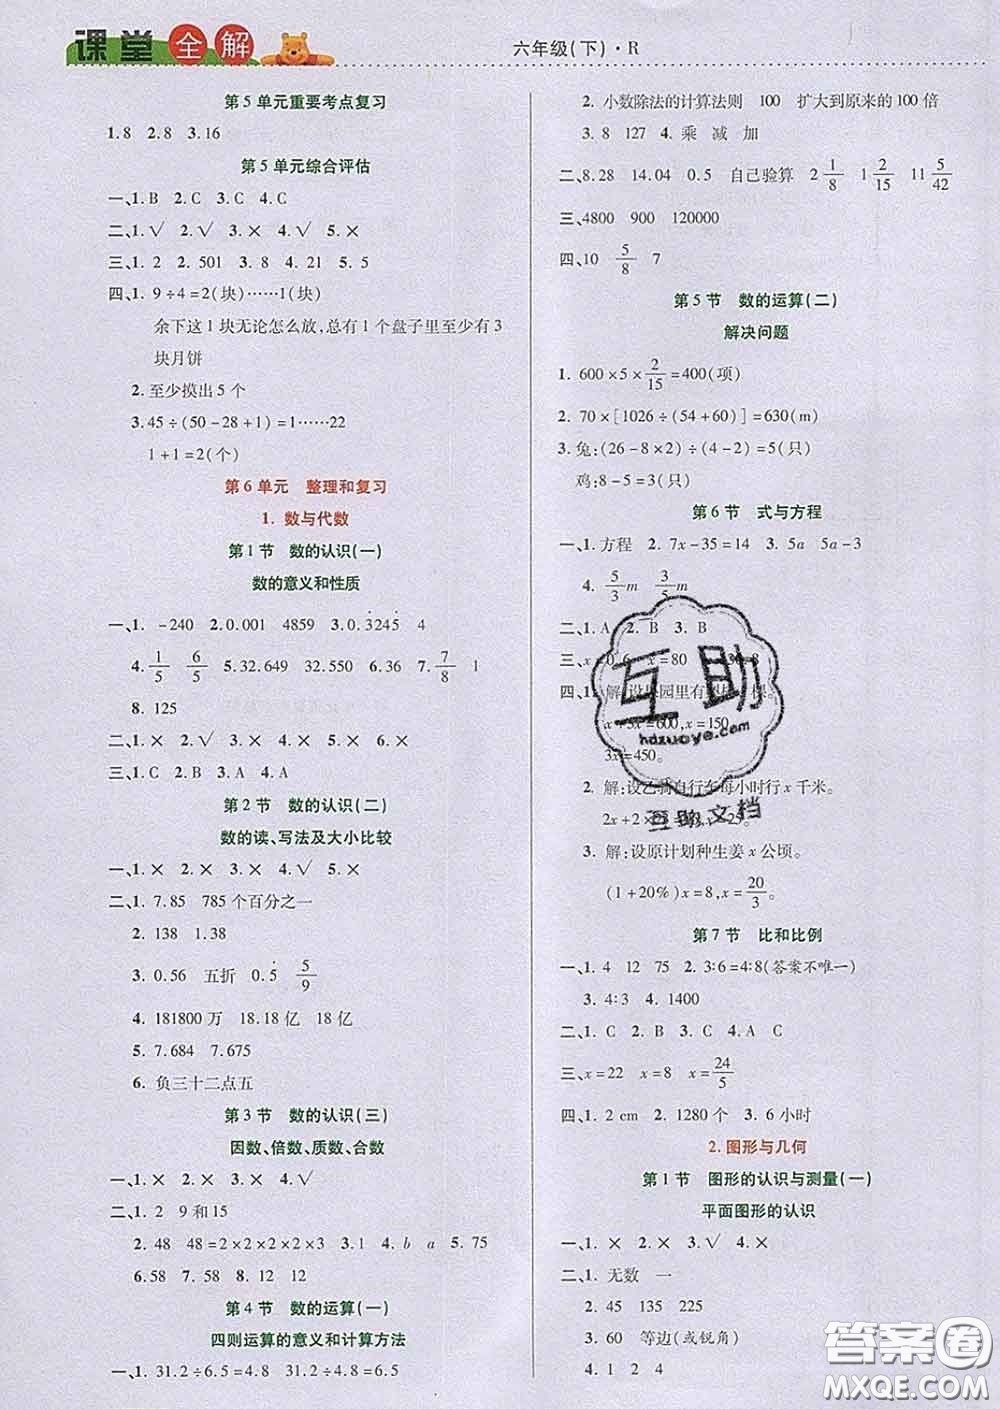 课堂全解
六年级(下)·R
第5单元重要考点复习
1.8 2.8 3.16
第5单元综合评估
一、1. B 2. C 3. C 4. C
二、1.√ 2.√ 3.× 4.√ 5.×
三、1. 2 2. 501 3. 8 4. 21 5. 5
四、1. 9÷4=2(块)……1(块)
余下这1块无论怎么放,总有1个盘子里至少有3
块月饼
2. 至少摸出5个
3. 45÷(50-28+1)=1……22
1+1=2(个)
第6单元 整理和复习
1. 数与代数
第1节 数的认识(一)
数的意义和性质
一、1. -240 2. 0.001 4859 3. 0.3̇245̇ 4
4. 1/5 6/5 5. 32.649 32.550 6. 36 7. 7/8 1
8. 125
二、1.× 2.√ 3.× 4.×
三、1. C 2. B 3. A 4. A
第2节 数的认识(二)
数的读、写法及大小比较
一、1.× 2.× 3.× 4.√ 5.×
二、1. 7.85 785个百分之一
2. 138 1.38
3. 0.56 五折 0.5̇ 5/9
4. 181800万 18.18亿 18亿
5. 7.684 7.675
6. 负三十二点五
第3节 数的认识(三)
因数、倍数、质数、合数
一、1.× 2.× 3.× 4.× 5.√
二、1. 2 9和15
2. 48 48=2×2×2×2×3 3. 1 4. b a 5. 75
6. 58 7. 58 8. 12 12
第4节 数的运算(一)
四则运算的意义和计算方法
一、1. 31.2÷6.5=4.8 31.2÷4.8=6.5
2. 小数除法的计算法则 100 扩大到原来的100倍
3. 8 127 4. 乘 减 加
二、8.28 14.04 0.5 自己验算 2 1/8 1 2/15 11 5/42
三、4800 900 120000
四、10 5/8 7
第5节 数的运算(二)
解决问题
1. 600×5×2/15=400(项)
2. 70×[1026÷(54+60)]=630(m)
3. 兔:(26-8×2)÷(4-2)=5(只)
鸡:8-5=3(只)
第6节 式与方程
一、1. 方程 2. 7x-35=14 3. 5a 5a-3
4. 5/3 m 3/5 m
二、1. A 2. B 3. B
三、x=0.6 x=80
四、1. 解:设果园里有 棵。
x+3x=600,x=150,
3x=450。
2. 解:设乙骑自行车每小时行x千米。
2x+2×
3. 解:设原计划种生姜x公顷。
(1+20%)x=8,x=20/3。
第7节 比和比例
一、1. 4 12 75 2. 3∶6=4∶8(答案不唯一)
3. 4∶3 4. 1400
二、1. C 2. B 3. A 4. C
三、x=22 x=8 x=24/5
四、1. 2 cm 2. 1280个 3. 6小时
2. 图形与几何
第1节 图形的认识与测量(一)
平面图形的认识
一、1.× 2.× 3.√ 4.×
二、1. 无数 一
2. 45 135 225
3. 60 等边(或锐角)
4. 1 4
互助
hdzuoye.com
互助文档
答案圈
MXQE.COM